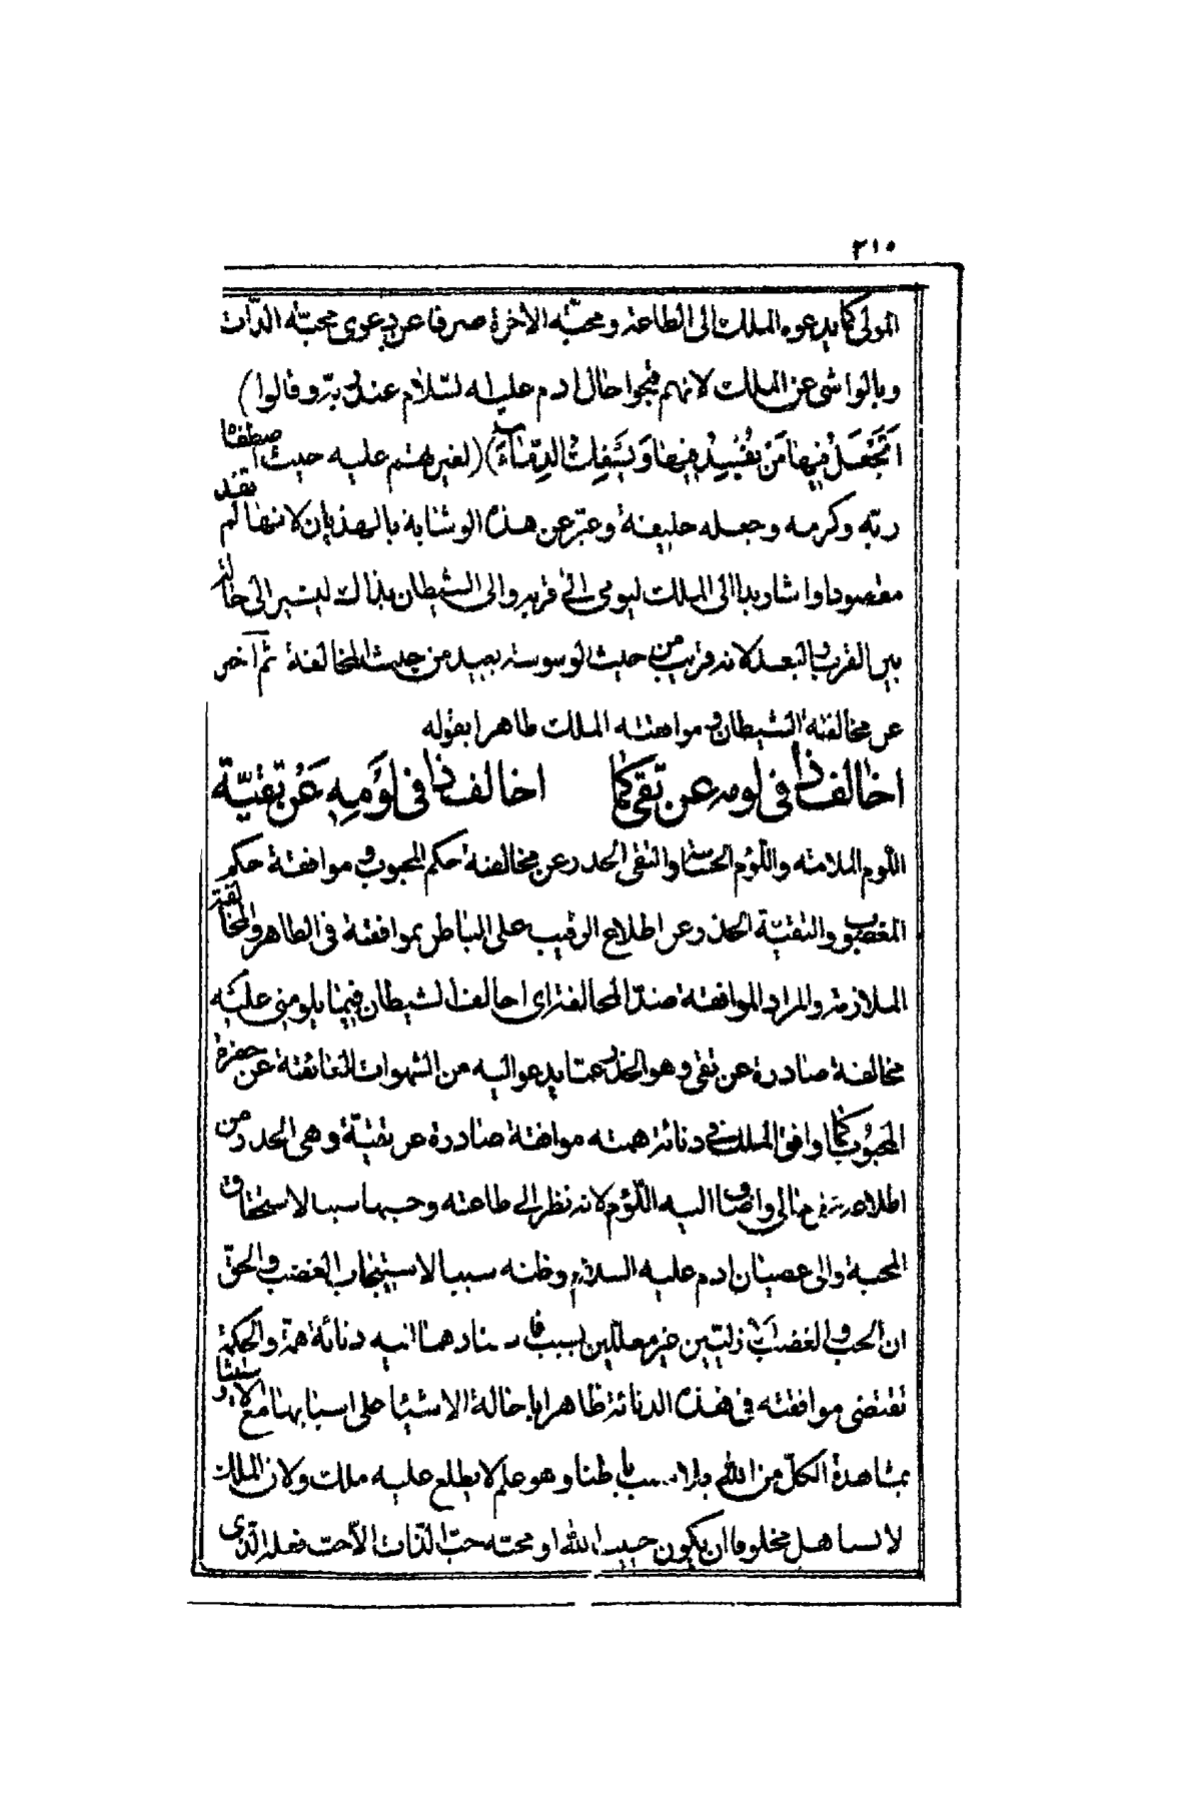 ٣١٥
المولى كما يدعوه الملك الى الطاعة ومحبّة الآخرة صرفا عن دعوى محبّة الذّات
وبالواشى عن الملك لانهم قبحوا حال ادم عليه لسّلام عند ربّه وقالوا)
اَتَجْعَلُ فِيهَا مَنْ يُفْسِدُ فِيهَا وَيَسْفِكُ الدِّمَاءَ)(لغيرتهم عليه حيث اصطفاه
ربّه وكرمه وجعله خليفة وعبّر عن هذه الوشاية بالهذيان لانها لم تفد
مقصودا واشار بذا الى الملك ليومى الى قربه والى الشيطان بذاك ليشير الى حالته
بين القرب والبعد لانه قريب من حيث الوسوسة بعيد من حيث المخالفة ثم اخبر
عن مخالفة الشيطان وموافقته الملك ظاهرا بقوله
اخالف ذا فى لومه عن تقى كما اخالف ذا فى لُؤمِهِ عَنْ تَقِيّة
اللوم الملامة واللؤم الخسّة والتقى الحذر عن مخالفة حكم المحبوب وموافقة حكم
المغضوب والتقيّة الحذر عن اطلاع الرقيب على الباطن بموافقة فى الظاهر والمخالفة
الملازمة والمراد الموافقة ضدّ المخالفة اى اخالف الشيطان فيما يلومنى عليه
مخالفة صادرة عن تقى وهو الحذر عمّا يدعو اليه من الشهوات العائقة عن حضرة
المحبوب كما اوافق الملك فى دنائة همته موافقة صادرة عن تقيّة وهى الحذر من
اطلاعه على حالى واضاف اليه اللّؤم لانه نظر الى طاعته وحسبها سببا لاستحقاق
المحبة والى عصيان ادم عليه السلام وظنه سببا لاستيجاب الغضب والحقّ
ان الحب والغضب ذاتيّين غير معلّلين بسبب فاسنادهما اليه دنائة همّة والحكمة
تقتضى موافقته فى هذه الدنائة ظاهرا باحالة الاشياء على اسبابها مع الاسباب و
بمشاهدة الكلّ من الله بلا سبب باطنا وهو علم لا يطلع عليه ملك ولان الملك
لا يساهل مخلوقا ان يكون حبيب الله او محبّه حبّ الذّات الاّحبّ فعله الّذى